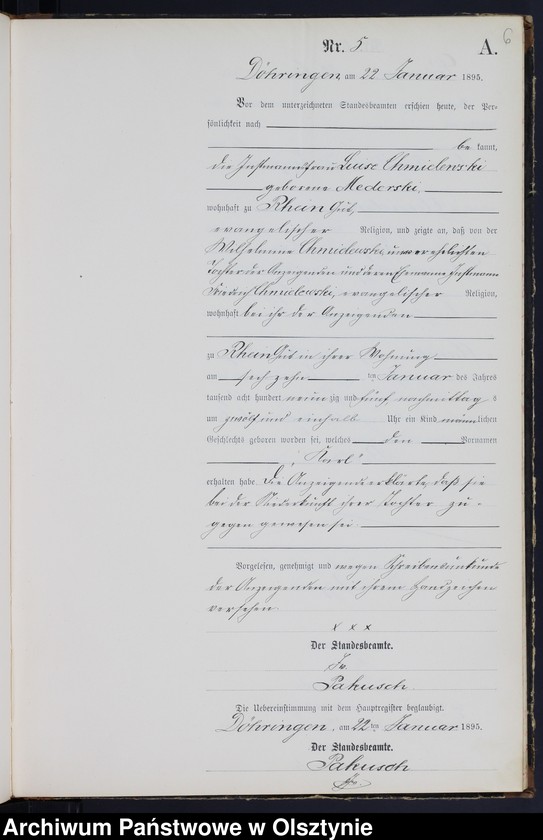 6
Nr. 5 A.
Döhringen, am 22 Januar 1895.
Vor dem unterzeichneten Standesbeamten erschien heute, der Per-
sönlichkeit nach
bekannt,
die Instmannsfrau Luise Chmielewski
geborene Mederski,
wohnhaft zu Rhein Gut,
evangelischer Religion, und zeigte an, daß von der
Wilhelmine Chmielewski, unverehelichten
Tochter der Anzeigenden und deren Ehemanne Instmann
Friedrich Chmielewski, evangelischer Religion,
wohnhaft bei ihr der Anzeigenden
zu Rhein Gut in ihrer Wohnung
am sechzehn ten Januar des Jahres
tausend acht hundert neunzig und fünf nachmittags
um zwölf und einhalb Uhr ein Kind männlichen
Geschlechts geboren worden sei, welches den Vornamen
"Karl"
erhalten habe. Die Anzeigende erklärte, daß sie
bei der Niederkunft ihrer Tochter zu-
gegen gewesen sei.
Vorgelesen, genehmigt und wegen Schreibensunkunde
der Anzeigenden mit ihrem Handzeichen
versehen
x x x
Der Standesbeamte.
Pakusch
Die Uebereinstimmung mit dem Hauptregister beglaubigt.
Döhringen, am 22 ten Januar 1895.
Der Standesbeamte.
Pakusch
Archiwum Państwowe w Olsztynie